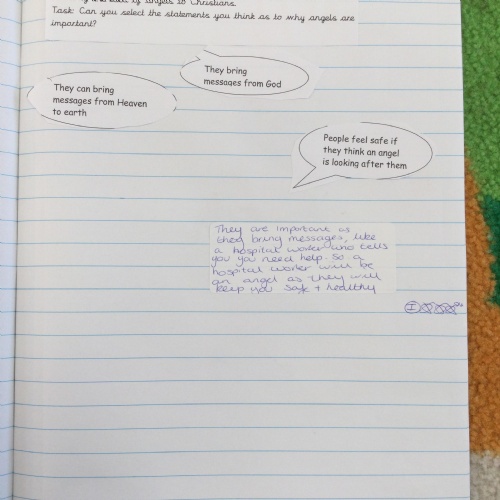 of angels to Christians.
Task: Can you select the statements you think as to why angels are
important?
They bring
messages from God
They can bring
messages from Heaven
to earth
People feel safe if
they think an angel
is looking after them
They are important as
they bring messages, like
a hospital worker who tells
you you need help. So a
hospital worker will be
an angel as they will
keep you safe + healthy
I